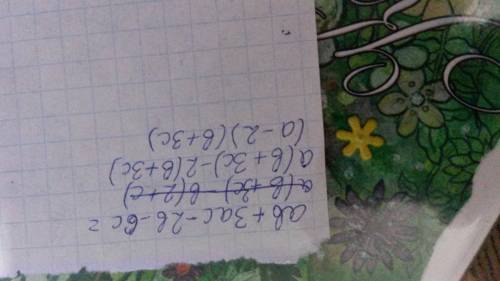 ab + 3ac - 2b - 6c =
a(b + 3c) - b(2 + c)
a(b + 3c) - 2(b + 3c)
(a - 2)(b + 3c)